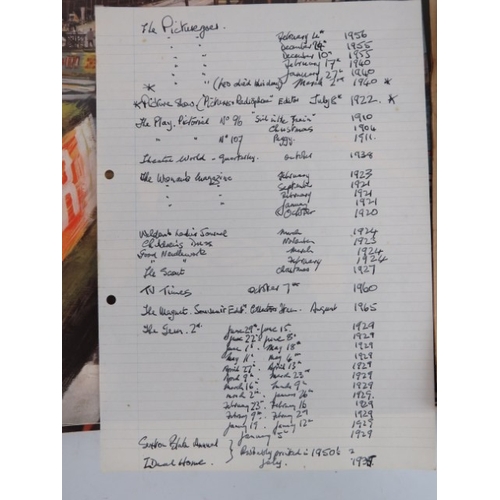 The Picturegoer. February 4th 1956
" " December 24th 1955
" " December 10th 1955
" " February 17th 1940
" " January 27th 1940
* " ( ) March 2nd 1940 *
* Picture Show ("Pictures Edition July 8th 1922. *
The Play Pictorial No 96 "Girl in the Train" 1910
Christmas 1904
" " No 107 Peggy 1911.
Theatre World - quarterly. October 1938
The Woman's Magazine February 1923
September 1921
February 1921
January 1921
October 1920
Weldon's Ladies Journal March 1924
Children's Dress November 1923
Good Needlework March 1924
February 1924
The Scout Christmas 1927
TV Times October 7th 1960
The Magnet. Souvenir Edtn August 1965
The Gem. 2d. June 29th - June 15 1929
June 22nd June 8th 1929
June 1st May 18th 1929
May 11th May 4th 1929
April 27th April 13th 1929
April 9th March 23rd 1929
March 16th March 9th 1929
March 2nd January 26th 1929.
February 23rd February 16 1929
February 9th February 2nd 1929
January 19. January 12th 1929
January 5th 1929
Annual } Probably printed in 1950's
July.